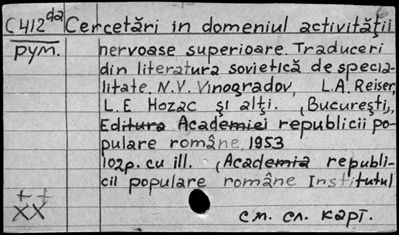 C412 да Cercetări in domeniul activităţii
рум. nervoase superioare. Traduceri
din literatura sovietică de specia-
litate, N.V. Vinogradov, L.A. Reiser,
L.E. Hozac şi alţi. (Bucureşti),
Editura Academiei republicii po-
pulare române, 1953
102p. cu ill. (Academia republi-
cii populare române Institutul
++
XX
см. сл. карт.